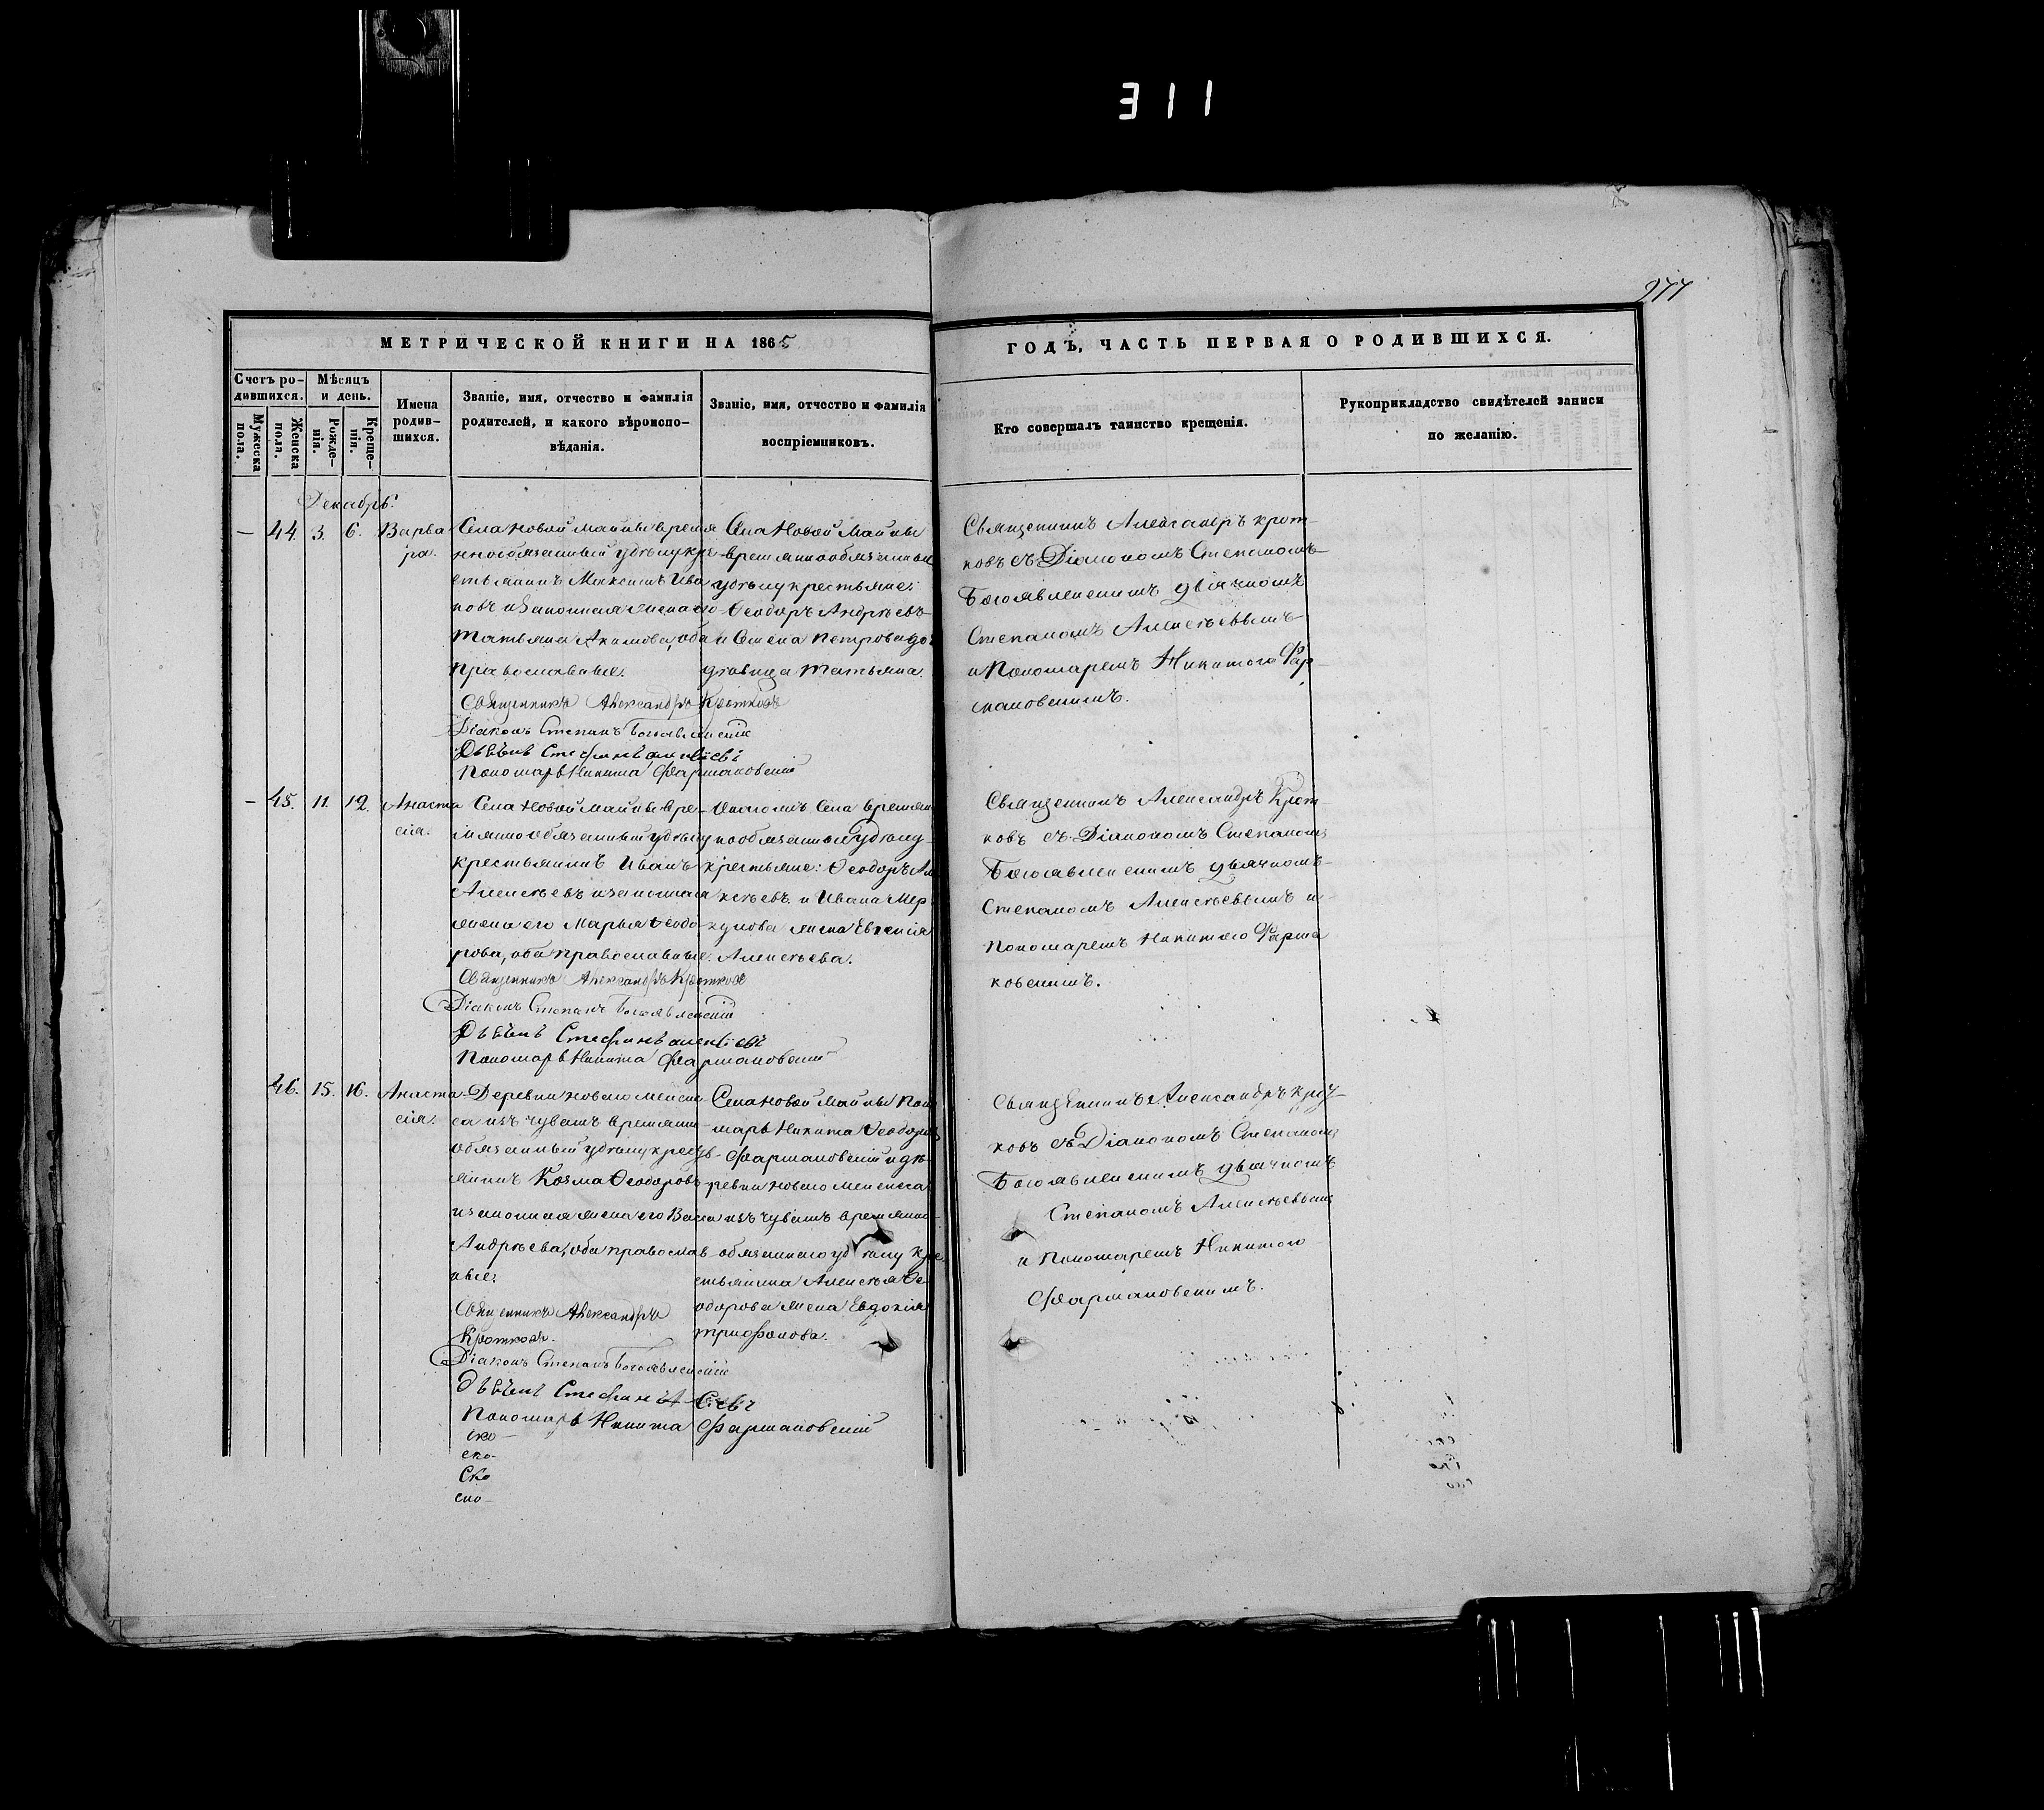 311
977
МЕТРИЧЕСКОЙ КНИГИ НА 1865
ГОДЪ, ЧАСТЬ ПЕРВАЯ О РОДИВШИХСЯ.
Счетъ ро-
дившихся.
Мужеска
пола.
Женска
пола.
Мѣсяцъ
и день.
Рожде-
нія.
Креще-
нія.
Имена
родив-
шихся.
Званіе, имя, отчество и фамилія
родителей, и какого вѣроиспо-
вѣданія.
Званіе, имя, отчество и фамилія
воспріемниковъ.
Кто совершалъ таинство крещенія.
Рукоприкладство свидѣтелей записи
по желанію.
Декабрь.
— 44. 3. 6.
Варва
ра.
Села Новой Майны время
ннообязанный удѣлу кре
стьянинъ Максимъ Ива
новъ и законная жена его
Татьяна Акимова, оба
православные.
Священникъ Александръ Кротковъ
Діаконъ Степанъ Богоявленскій
Дьячекъ Стефанъ Алексѣевъ
Пономарь Никита Фармаковскій
Села Новой Майны
временнообязанные
удѣлу крестьяне:
Ѳеодоръ Андреевъ
и Семена Петрова до
дѣвица Татьяна.
Священникъ Александръ Крот-
ковъ съ Діакономъ Степаномъ
Богоявленскимъ дьячкомъ
Степаномъ Алексѣевымъ
и Пономаремъ Никитою Фар-
маковскимъ.
— 45. 11. 12.
Анаста
сія.
Села Новой Майны вре-
мянно обязанный удѣлу
крестьянинъ Иванъ
Алексѣевъ и законная
жена его Марья Ѳеодо-
рова, оба православные.
Священникъ Александръ Кротковъ
Діаконъ Степанъ Богоявленскій
Дьячекъ Стефанъ Алексѣевъ
Пономарь Никита Фармаковскій
Онагомъ Села времян
нообязанные удѣлу
крестьяне: Ѳеодоръ Ал
ксѣевъ и Ивана Мер
кулова жена Евгенія
Алексѣева.
Священникъ Александръ Крот
ковъ съ Діакономъ Степаномъ
Богоявленскимъ дьячкомъ
Степаномъ Алексѣевымъ и
Пономаремъ Никитою Фарма
ковскимъ.
46. 15. 16.
Анаста
сія.
Деревни Новаго
са изъ чувашъ времянно
обязанный удѣлу кресть
янинъ Козма Ѳеодоровъ
и законная жена его Васса
Андреева, оба правосла
вные.
Священникъ Александръ
Кротковъ.
Діаконъ Степанъ Богоявленскій
Дьячекъ Стефанъ А-сѣевъ
Пономарь Никита Фармаковскій
Села Новой Майны Поно
марь Никита Ѳеодоровъ
Фармаковскій и де-
ревни Новаго
изъ чувашъ времянно
обязаннаго удѣлу кре
стьянина Алексѣя Ѳе
одорова жена Евдокія
Трифонова.
Священникъ Александръ Крот-
ковъ съ Діакономъ Степаномъ
Богоявленскимъ дьячкомъ
Степаномъ Алексѣевымъ
и Пономаремъ Никитою
Фармаковскимъ.
ско-
ско-
Ско
ско-